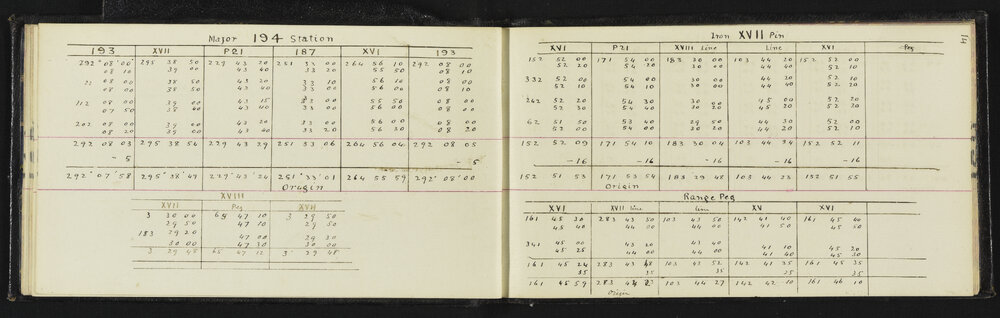 Major 194 Station
193 XVII P21 187 XVI 193
292° 08' 00" 295 38 50 229 43 20 251 33 00 264 56 10 292 08 00
08 10 39 00 43 40 33 20 55 50 08 10
22 08 00 38 50 43 20 33 10 56 10 08 00
08 00 38 50 43 40 33 00 56 00 08 10
112 08 00 39 00 43 15 33 00 55 50 08 00
07 50 38 00 43 40 33 00 56 00 08 00
202 08 00 39 00 43 20 33 00 56 00 08 00
08 20 39 00 43 40 33 20 56 30 08 20
292 08 03 295 38 54 229 43 29 251 33 06 264 56 04 292 08 05
- 5 - 5
292° 07' 58 295° 38' 49 229° 43' 24 251° 33' 01 264 55 59 292° 08' 00
Origin
XVIII
XVII Peg XVII
3 30 00 65 47 10 3 29 50
29 50 47 10 29 50
183 29 20 47 00 29 30
30 00 47 30 30 00
3 29 48 65 47 12 3° 29 48
14
Iron XVII Pin
XVI P21 XVIII Line Line XVI Peg
152 52 00 171 54 00 183 30 00 103 44 20 152 52 00
52 20 54 20 30 00 44 40 52 10
332 52 00 54 00 30 00 44 20 52 00
52 10 54 10 30 00 44 40 52 10
242 52 20 54 30 30 00 45 00 52 20
52 30 54 40 30 20 45 20 52 20
62 51 50 53 40 29 50 44 30 52 00
52 00 54 00 30 20 44 20 52 10
152 52 09 171 54 10 183 30 04 103 44 34 152 52 11
-16 -16 -16 -16 -16
152 51 53 171 53 54 183 29 48 103 44 23 152 51 55
Origin
Range Peg
XVI XVII Line Line XV XVI
161 45 30 283 43 50 103 43 50 142 41 40 161 45 40
45 40 44 00 44 00 41 50 45 50
341 45 00 43 20 43 40 41 10 45 20
45 25 44 00 44 00 41 40 45 30
161 45 24 283 43 48 103 43 52 142 41 35 161 45 35
35 35 35 35 35
161 45 59 283 44 23 103 44 27 142 42 10 161 46 10
Origin